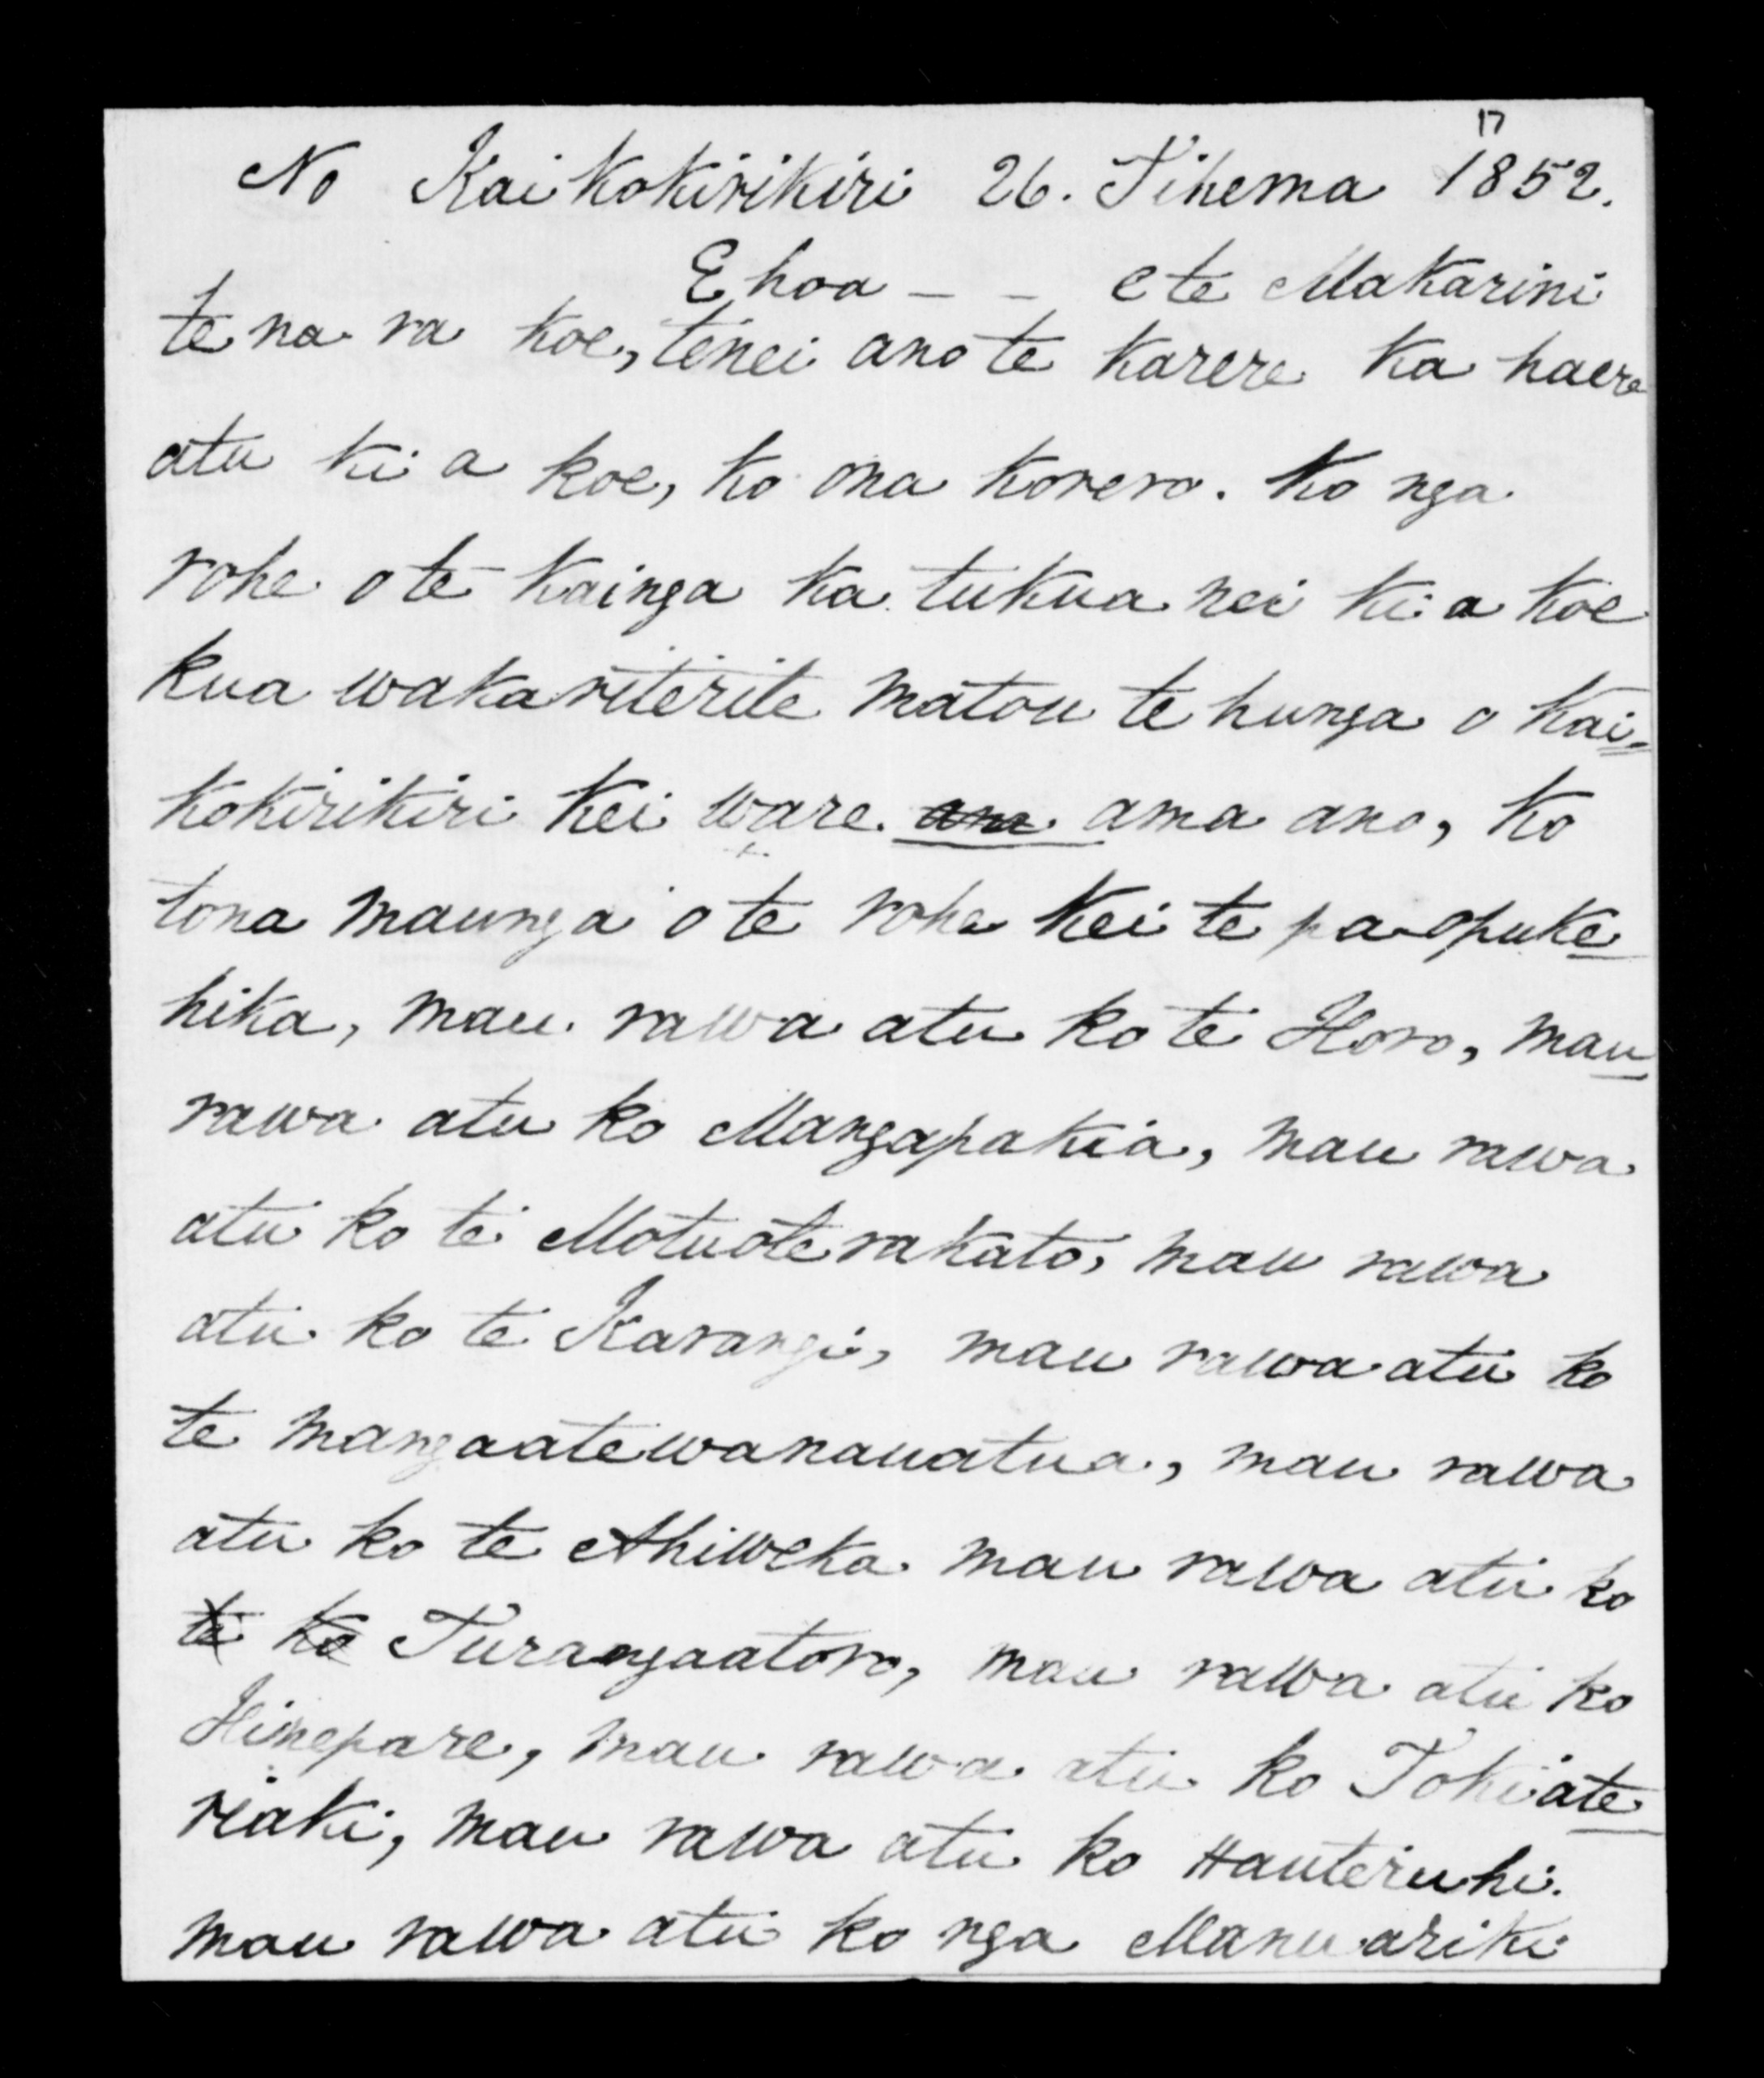 17
No Kaikokirikiri 26. Tihema 1852.
E hoa - - e te Makarini
te na ra koe, tenei ano te karere ka haere
atu ki a koe, ko ona korero. Ko nga
rohe o te kainga ka tukua nei ki a koe
kua wakariterite matou te hunga o Kai=
kokirikiri kei ware ama ama ano, ko
tona maunga o te rohe kei te pa opuke
hika, mau rawa atu ko te Horo, mau
rawa atu ko Mangapakia, mau rawa
atu ko te Motuoterakato, mau rawa
atu ko te Karangi, mau rawa atu ko
te mangaatewanauatua, mau rawa
atu ko te Ahiweka mau rawa atu ko
te ko Turangaatoro, mau rawa atu ko
Hinepare, mau rawa atu ko Tokiate
reaki, mau rawa atu ko Hauteruhi.
mau rawa atu ko nga Manuariki